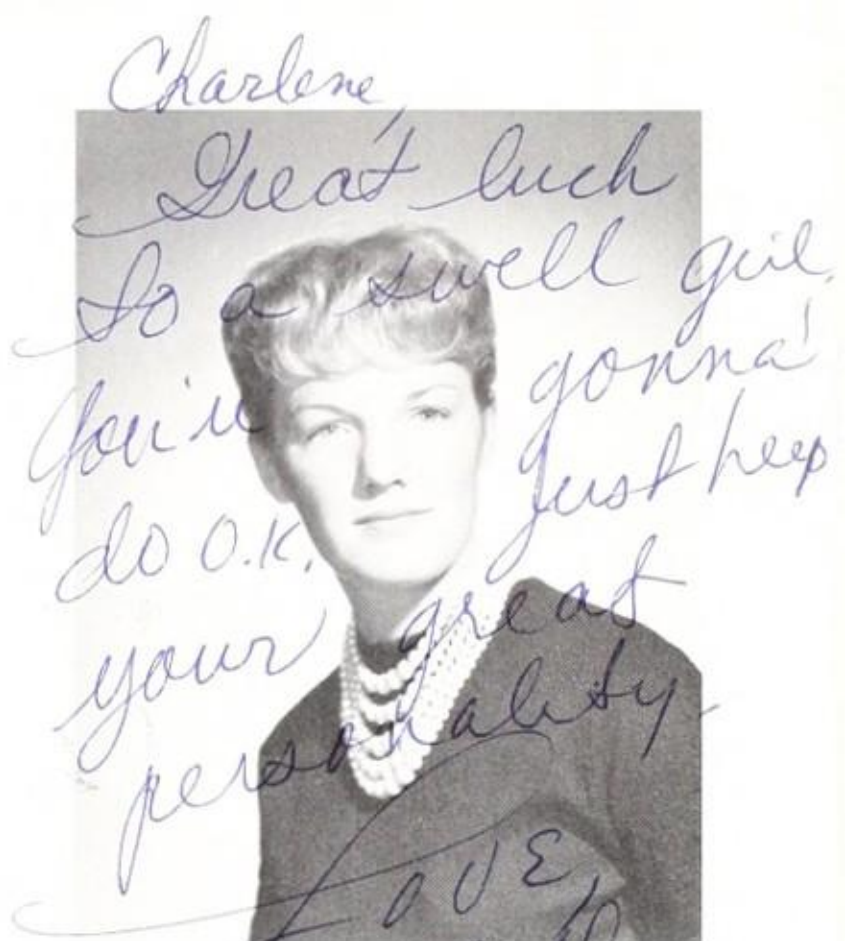 Charlene,
Great luck
to a swell girl.
You're gonna'
do O.K. Just keep
your great
personality.
Love,